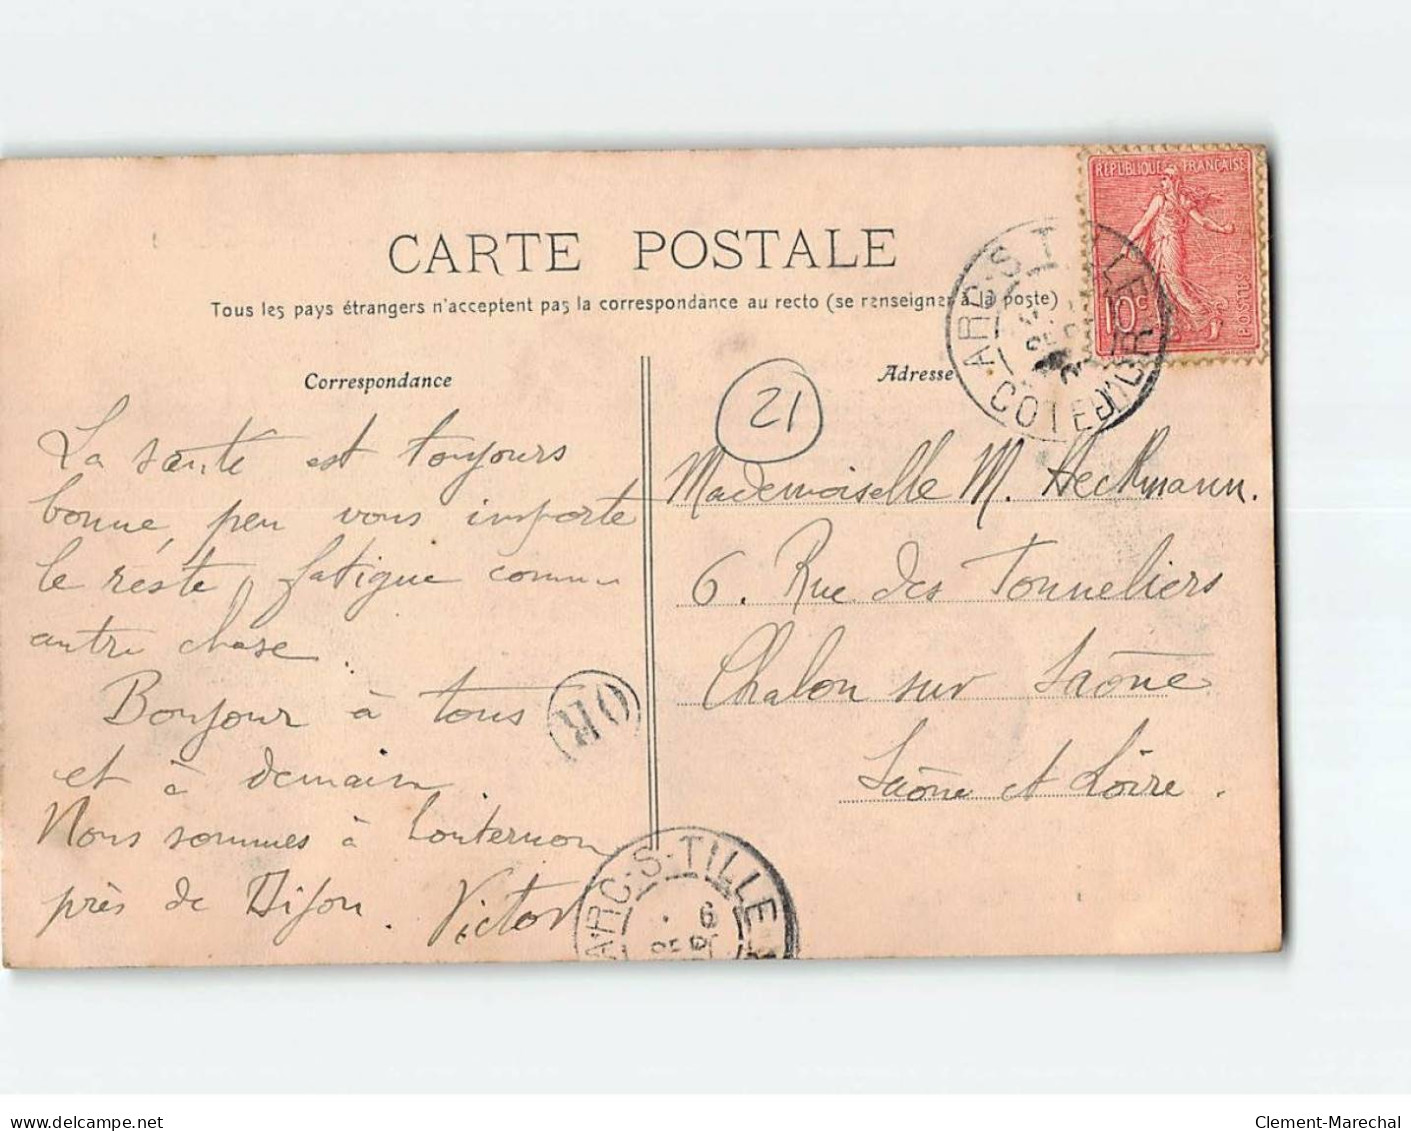 CARTE POSTALE
Tous les pays étrangers n'acceptent pas la correspondance au recto (se renseigner à la poste)
RÉPUBLIQUE FRANÇAISE
10c
POSTES
ARC-S-TILLE
COTE D'OR
Correspondance
Adresse
21
La santé est toujours
bonne, peu vous importe
le reste, fatigue comme
autre chose.
Bonjour à tous
et à demain
Nous sommes à
près de Dijon. Victor
OR
ARC-S-TILLE
6
Mademoiselle M. Heckmann.
6. Rue des Tonneliers
Chalon sur Saône
Saône et Loire.
delcampe.net
Clement-Marechal